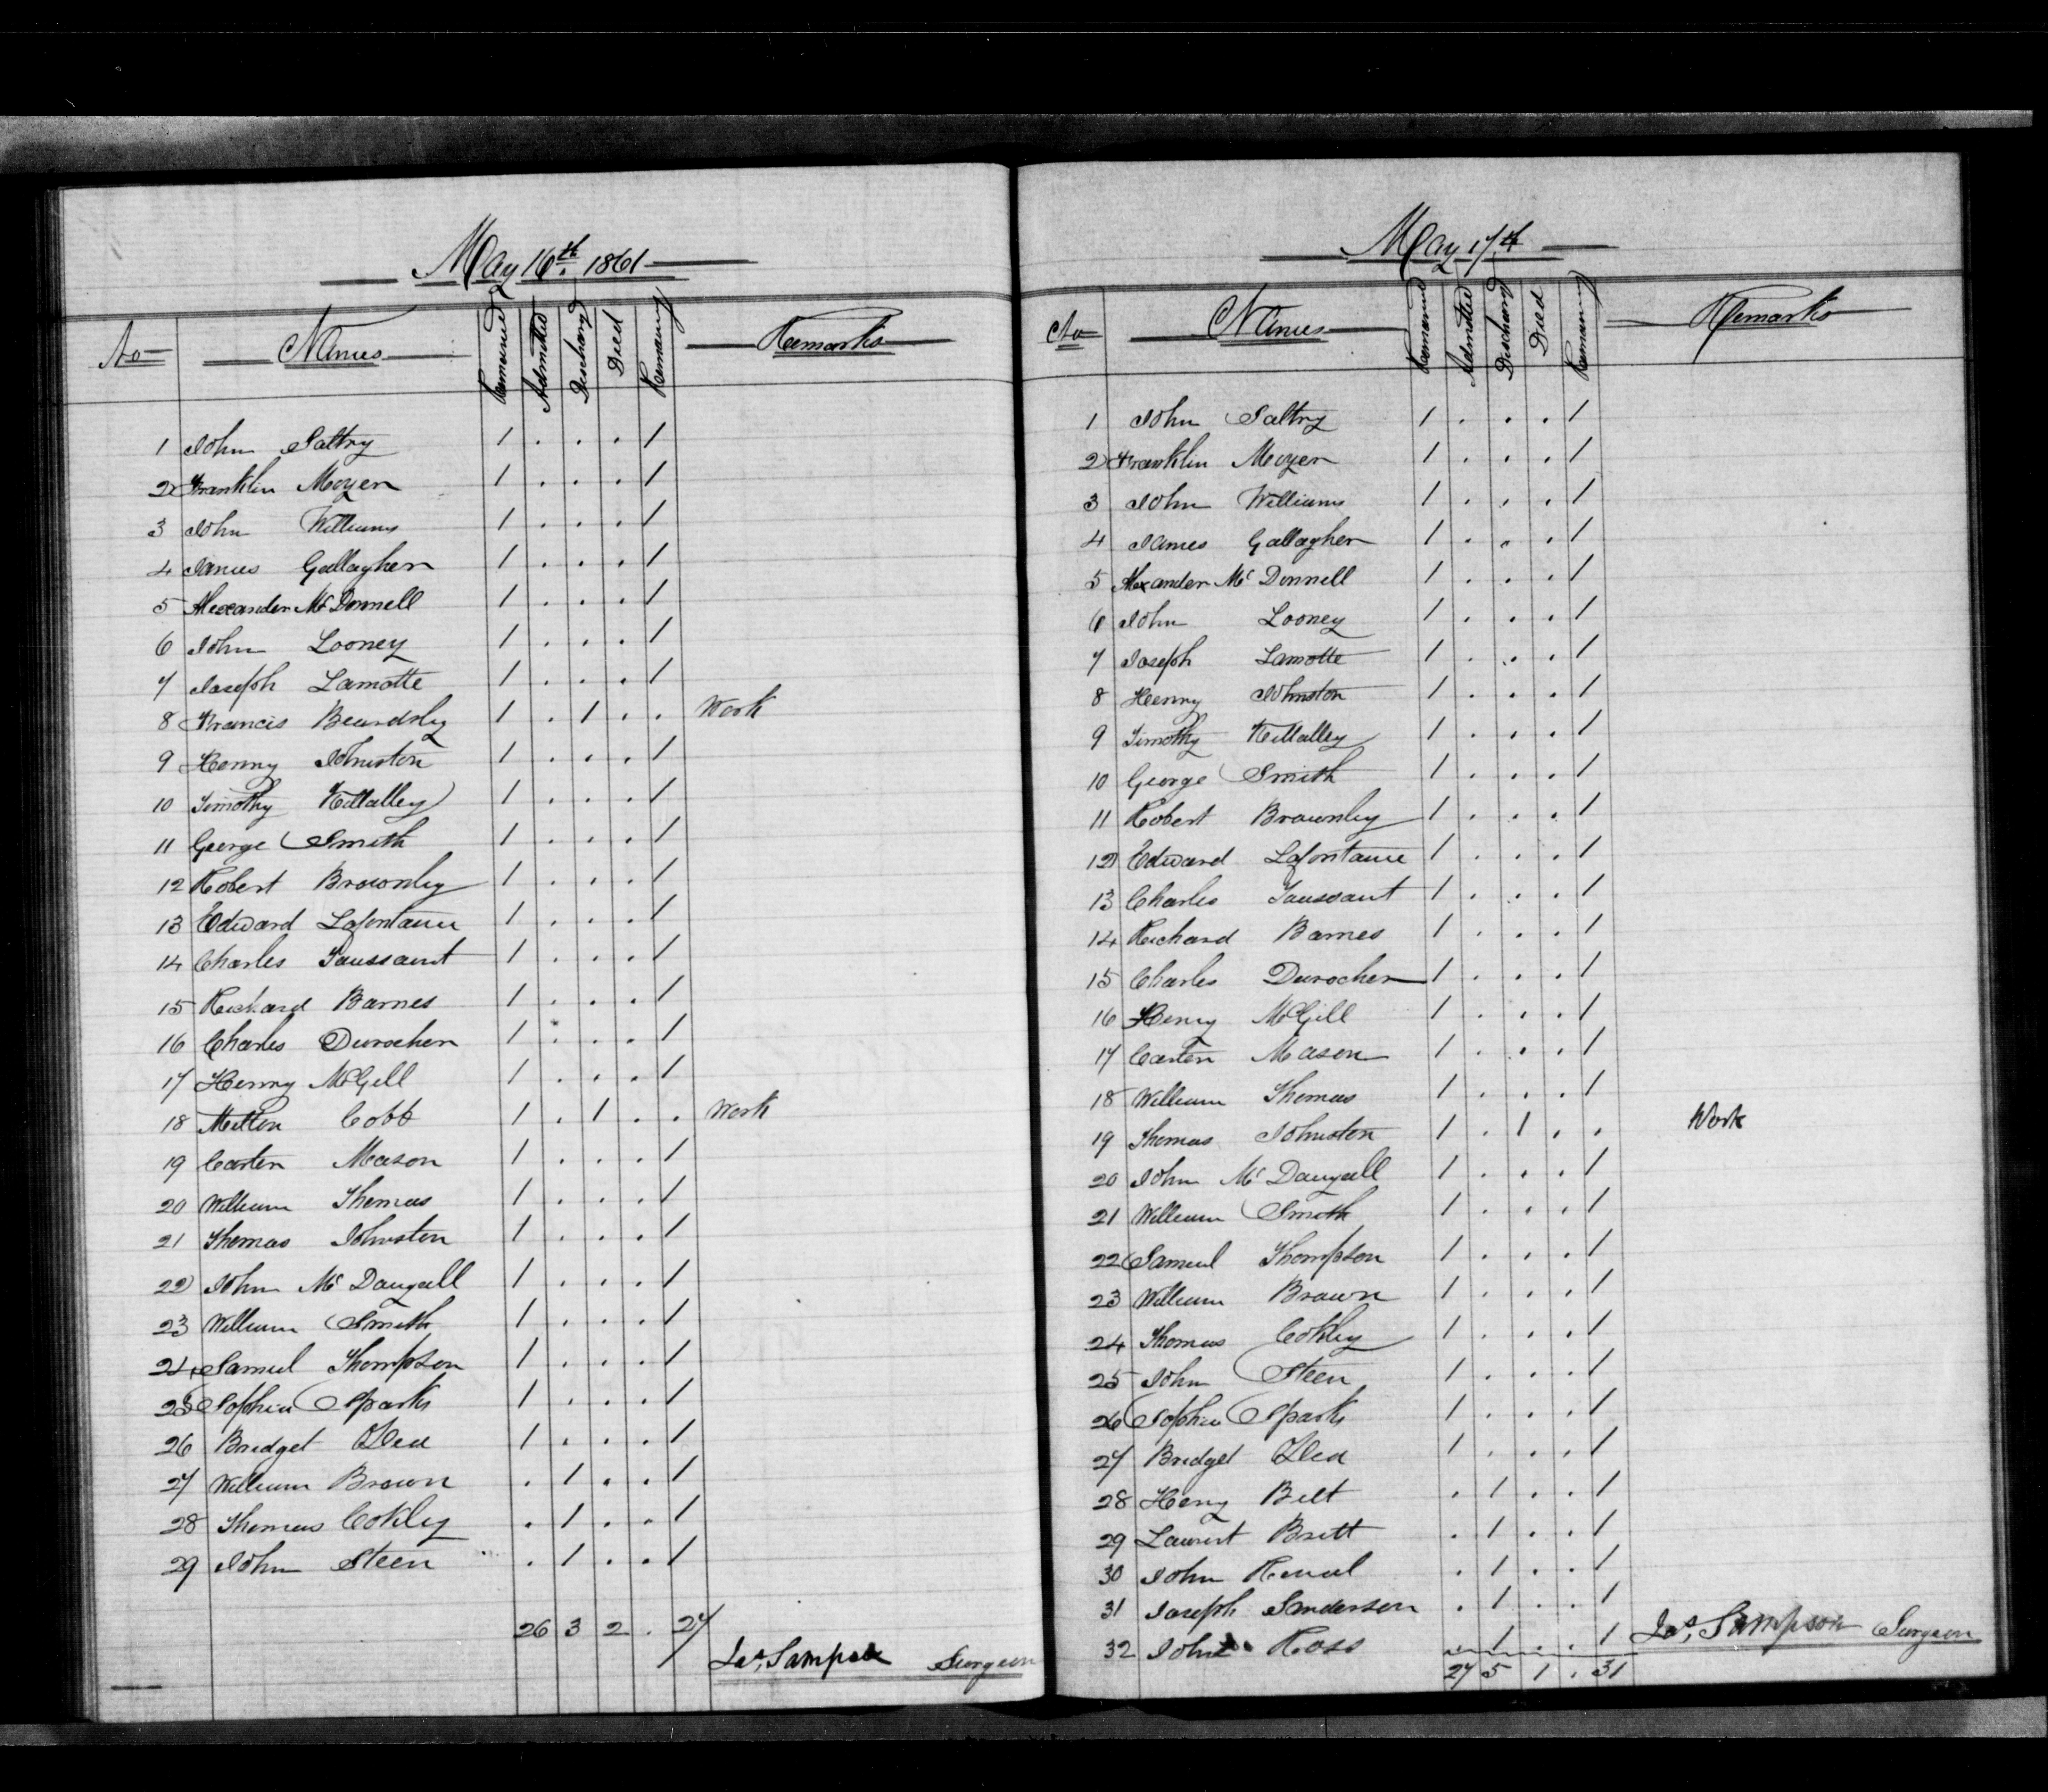 May 16th. 1861
No Names Remained Admitted Discharged Died Remaining Remarks
1 John Saltry 1 . . . 1
2 Franklin Moyer 1 . . . 1
3 John Williams 1 . . . 1
4 James Gallagher 1 . . . 1
5 Alexander Mc Donnell 1 . . . 1
6 John Looney 1 . . . 1
7 Joseph Lamotte 1 . . . 1
8 Francis Beardsley 1 . 1 . . Work
9 Henry Johnston 1 . . . 1
10 Timothy Kellalley 1 . . . 1
11 George Smith 1 . . . 1
12 Robert Brownley 1 . . . 1
13 Edward Lafontaine 1 . . . 1
14 Charles Toussaint 1 . . . 1
15 Richard Barnes 1 . . . 1
16 Charles Durocher 1 . . . 1
17 Henry McGill 1 . . . 1
18 Milton Cobb 1 . 1 . . Work
19 Carter Mason 1 . . . 1
20 William Thomas 1 . . . 1
21 Thomas Johnston 1 . . . 1
22 John Mc Dougall 1 . . . 1
23 William Smith 1 . . . 1
24 Samuel Thompson 1 . . . 1
25 Sophia Sparks 1 . . . 1
26 Bridget Dea 1 . . . 1
27 William Brown . 1 . . 1
28 Thomas Cokley . 1 . . 1
29 John Steen . 1 . . 1
26 3 2 . 27
Jas. Sampson Surgeon
May 17th
No Names Remained Admitted Discharged Died Remaining Remarks
1 John Saltry 1 . . . 1
2 Franklin Moyer 1 . . . 1
3 John Williams 1 . . . 1
4 James Gallagher 1 . . . 1
5 Alexander Mc Donnell 1 . . . 1
6 John Looney 1 . . . 1
7 Joseph Lamotte 1 . . . 1
8 Henry Johnston 1 . . . 1
9 Timothy Kellalley 1 . . . 1
10 George Smith 1 . . . 1
11 Robert Brownley 1 . . . 1
12 Edward Lafontaine 1 . . . 1
13 Charles Toussaint 1 . . . 1
14 Richard Barnes 1 . . . 1
15 Charles Durocher 1 . . . 1
16 Henry McGill 1 . . . 1
17 Carter Mason 1 . . . 1
18 William Thomas 1 . . . 1
19 Thomas Johnston 1 . 1 . . Work
20 John Mc Dougall 1 . . . 1
21 William Smith 1 . . . 1
22 Samuel Thompson 1 . . . 1
23 William Brown 1 . . . 1
24 Thomas Cokley 1 . . . 1
25 John Steen 1 . . . 1
26 Sophia Sparks 1 . . . 1
27 Bridget Dea 1 . . . 1
28 Henry Belt . 1 . . 1
29 Laurent Britt . 1 . . 1
30 John . 1 . . 1
31 Joseph Sanderson . 1 . . 1
32 John Ross . 1 . . 1
27 5 1 . 31
Jas. Sampson Surgeon